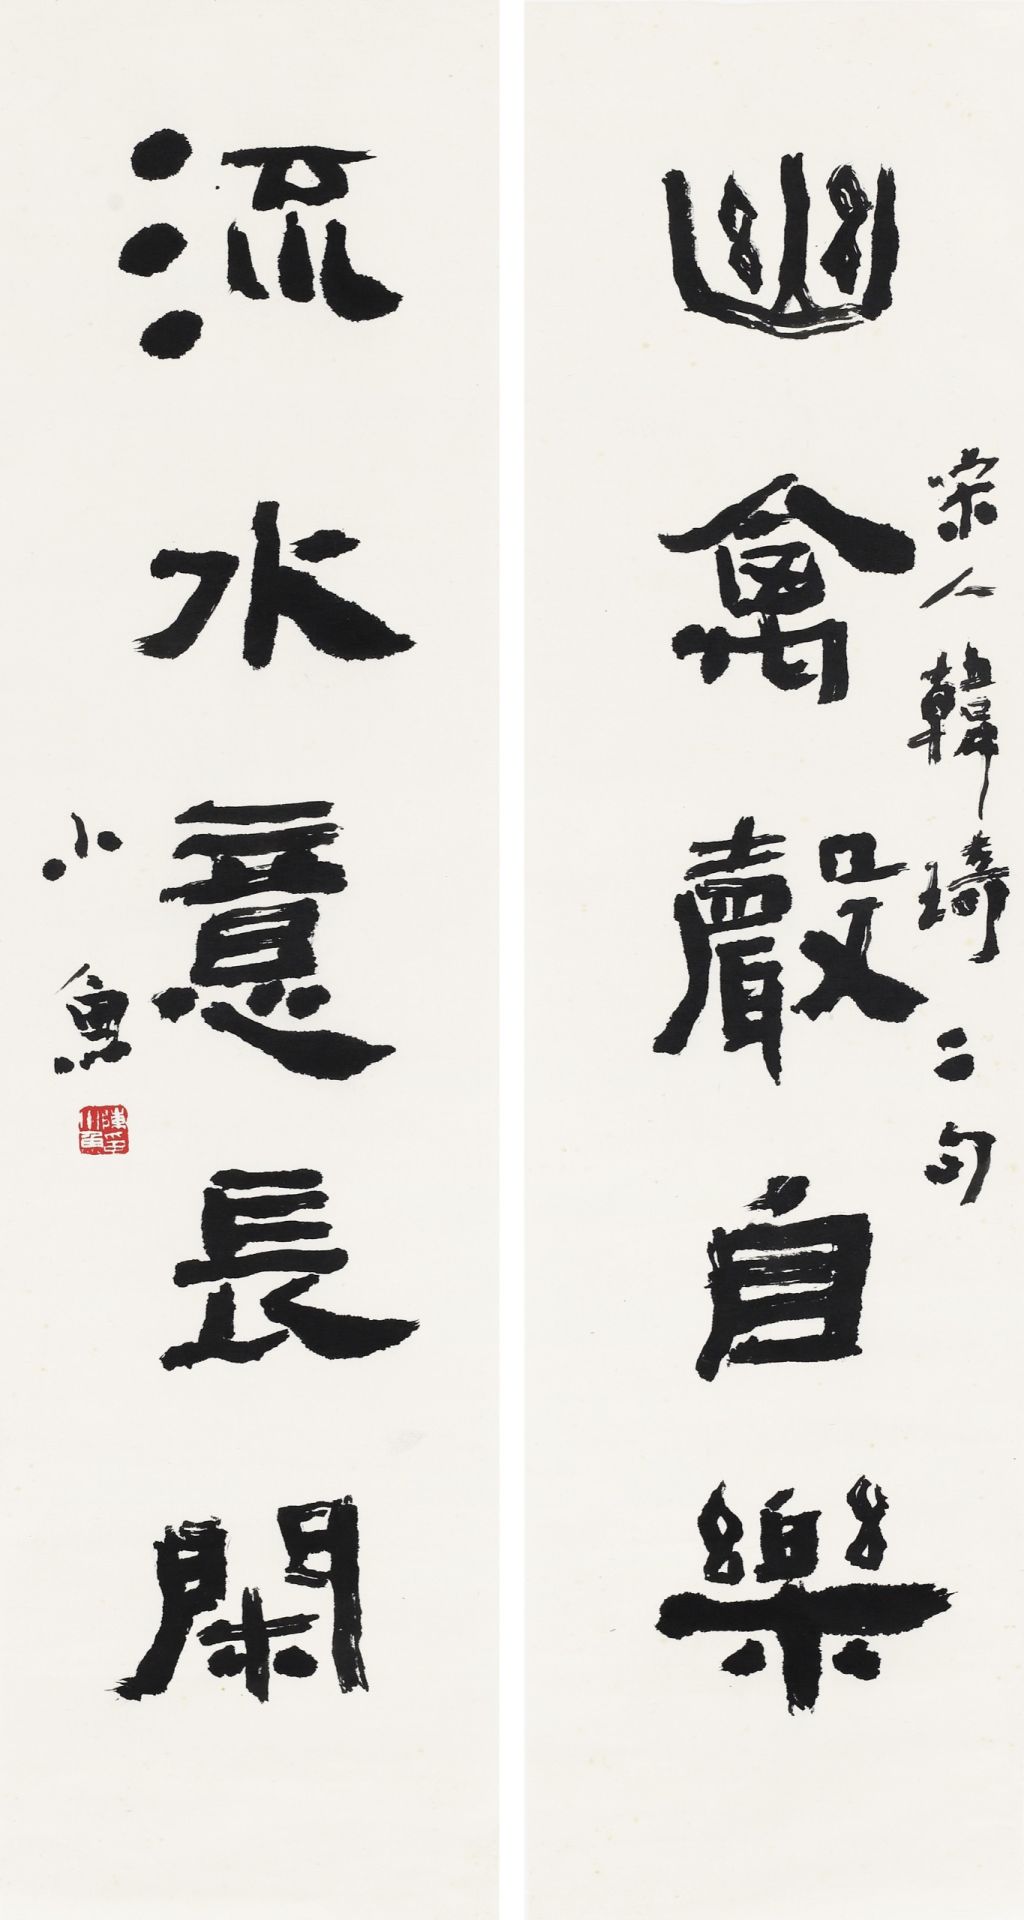 幽禽聲自樂
宋人韓琦二句
流水意長閑
小魚
陳印小魚